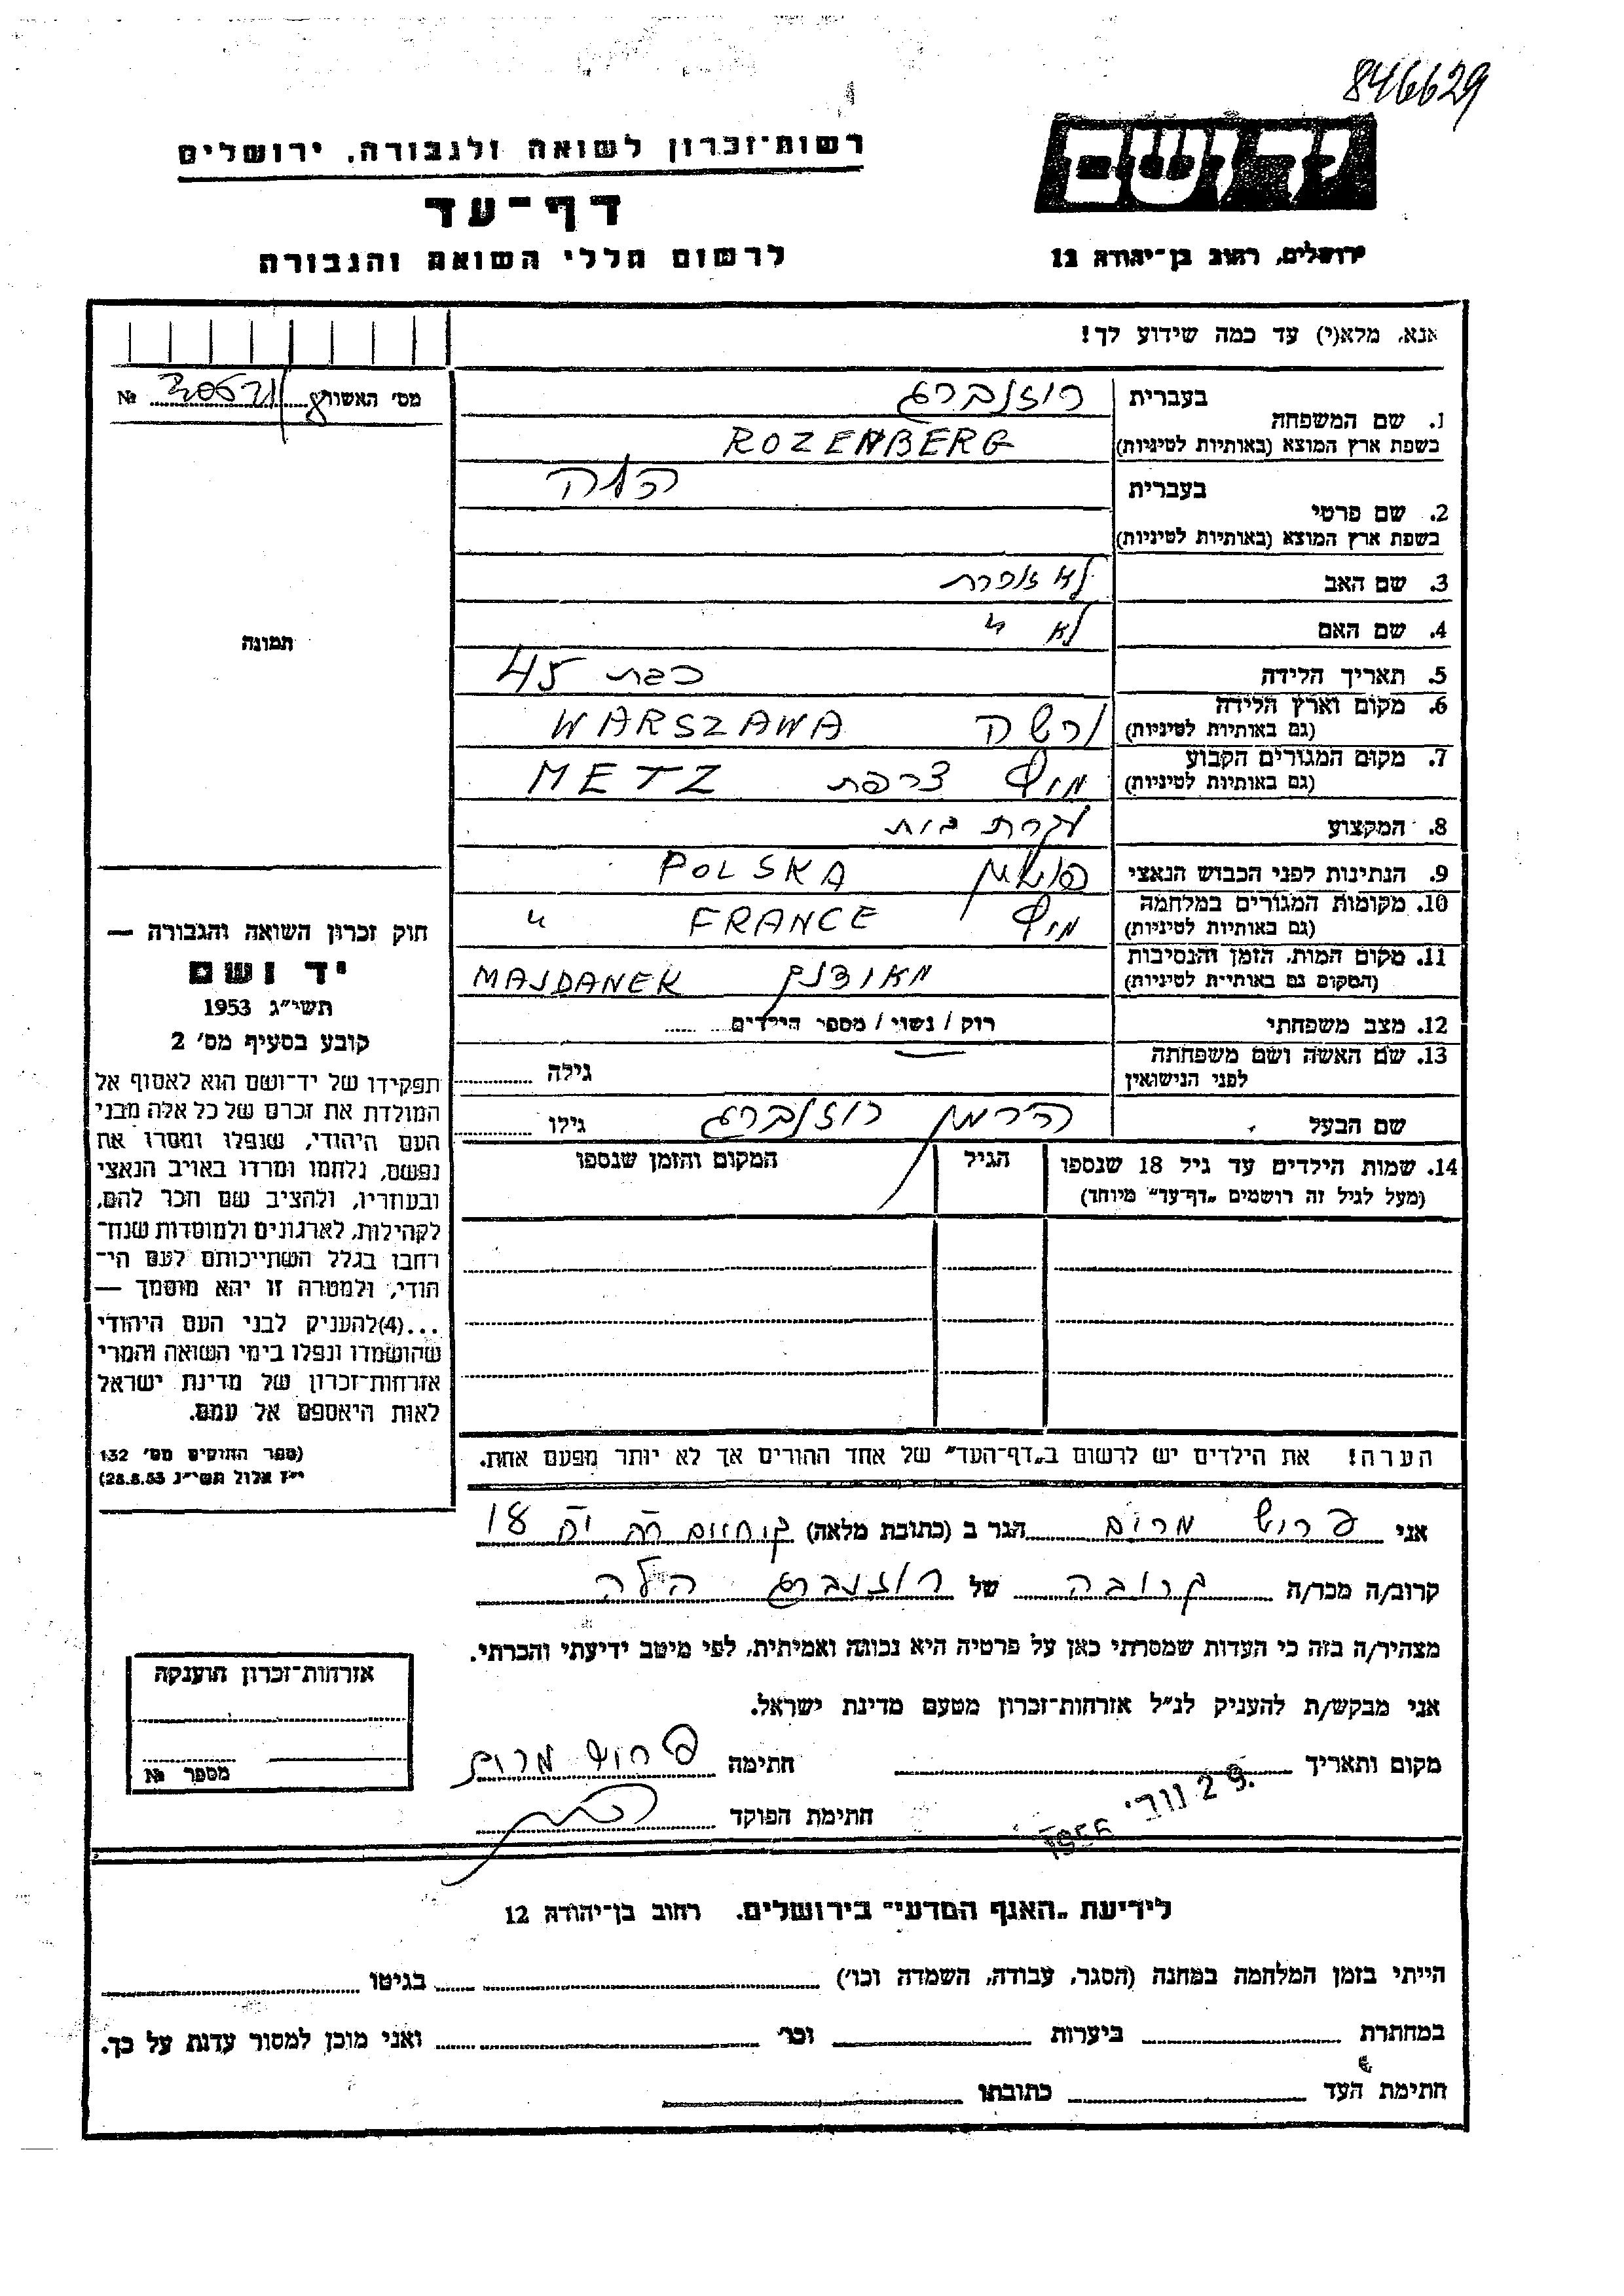 846629
יד ושם
רשות־זכרון לשואה ולגבורה, ירושלים
דף־עד
לרשום חללי השואה והגבורה
ירושלים, רחוב בן־יהודה 12
אנא, מלא(י) עד כמה שידוע לך!
מס׳ האשור №
1. שם המשפחה
בעברית רוזנברג
בשפת ארץ המוצא (באותיות לטיניות) ROZENBERG
2. שם פרטי
בעברית הלה
בשפת ארץ המוצא (באותיות לטיניות)
3. שם האב לא זוכרת
4. שם האם לא "
תמונה
5. תאריך הלידה כבת 45
6. מקום וארץ הלידה (גם באותיות לטיניות) ורשה WARSZAWA
7. מקום המגורים הקבוע (גם באותיות לטיניות) מץ צרפת METZ
8. המקצוע עקרת בית
9. הנתינות לפני הכבוש הנאצי פולנית POLSKA
10. מקומות המגורים במלחמה (גם באותיות לטיניות) FRANCE "
11. מקום המות, הזמן והנסיבות (המקום גם באותיות לטיניות) MAJDANEK
12. מצב משפחתי רוק / נשוי / מספר הילדים
13. שם האשה ושם משפחתה לפני הנישואין גילה
שם הבעל הרמן רוזנברג גילו
14. שמות הילדים עד גיל 18 שנספו
(מעל לגיל זה רושמים „דף־עד" מיוחד)
הגיל
המקום והזמן שנספו
הערה! את הילדים יש לרשום ב„דף־העד" של אחד ההורים אך לא יותר מפעם אחת.
חוק זכרון השואה והגבורה —
יד ושם
תשי״ג 1953
קובע בסעיף מס׳ 2
תפקידו של יד־ושם הוא לאסוף אל
המולדת את זכרם של כל אלה מבני
העם היהודי, שנפלו ומסרו את
נפשם, נלחמו ומרדו באויב הנאצי
ובעוזריו, ולהציב שם וזכר להם,
לקהילות, לארגונים ולמוסדות שנח־
רחבו בגלל השתייכותם לעם הי־
הודי, ולמטרה זו יהא מוסמך —
...(4)להעניק לבני העם היהודי
שהושמדו ונפלו בימי השואה והמרי
אזרחות־זכרון של מדינת ישראל
לאות היאספם אל עמם.
(ספר החוקים מס׳ 132
י״ז אלול תשי״ג 28.8.53)
אני פרוש מרים הגר ב (כתובת מלאה) 18
קרוב/ה מכר/ה קרובה של רוזנברג הלה
מצהיר/ה בזה כי העדות שמסרתי כאן על פרטיה היא נכונה ואמיתית, לפי מיטב ידיעתי והכרתי.
אני מבקש/ת להעניק לנ״ל אזרחות־זכרון מטעם מדינת ישראל.
מקום ותאריך 29 נוב׳ 1956 חתימה פרוש מרים
חתימת הפוקד
אזרחות־זכרון הוענקה
מספר №
לידיעת „האגף המדעי" בירושלים, רחוב בן־יהודה 12
הייתי בזמן המלחמה במחנה (הסגר, עבודה, השמדה וכו׳) בגיטו
במחתרת ביערות וכו׳ ואני מוכן למסור עדות על כך.
חתימת העד כתובתו